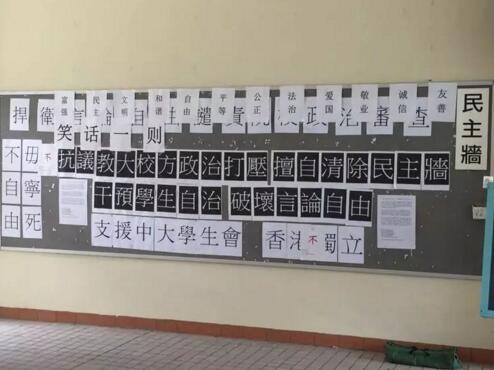 富强 民主 文明 和谐 自由 平等 公正 法治 爱国 敬业 诚信 友善
民主牆
捍衛言論自 譴責 政治審查
笑话一则
不自由
毋寧死
不
抗議教大校方政治打壓 擅自清除民主牆
干預學生自治 破壞言論自由
支援中大學生會 香港不獨立